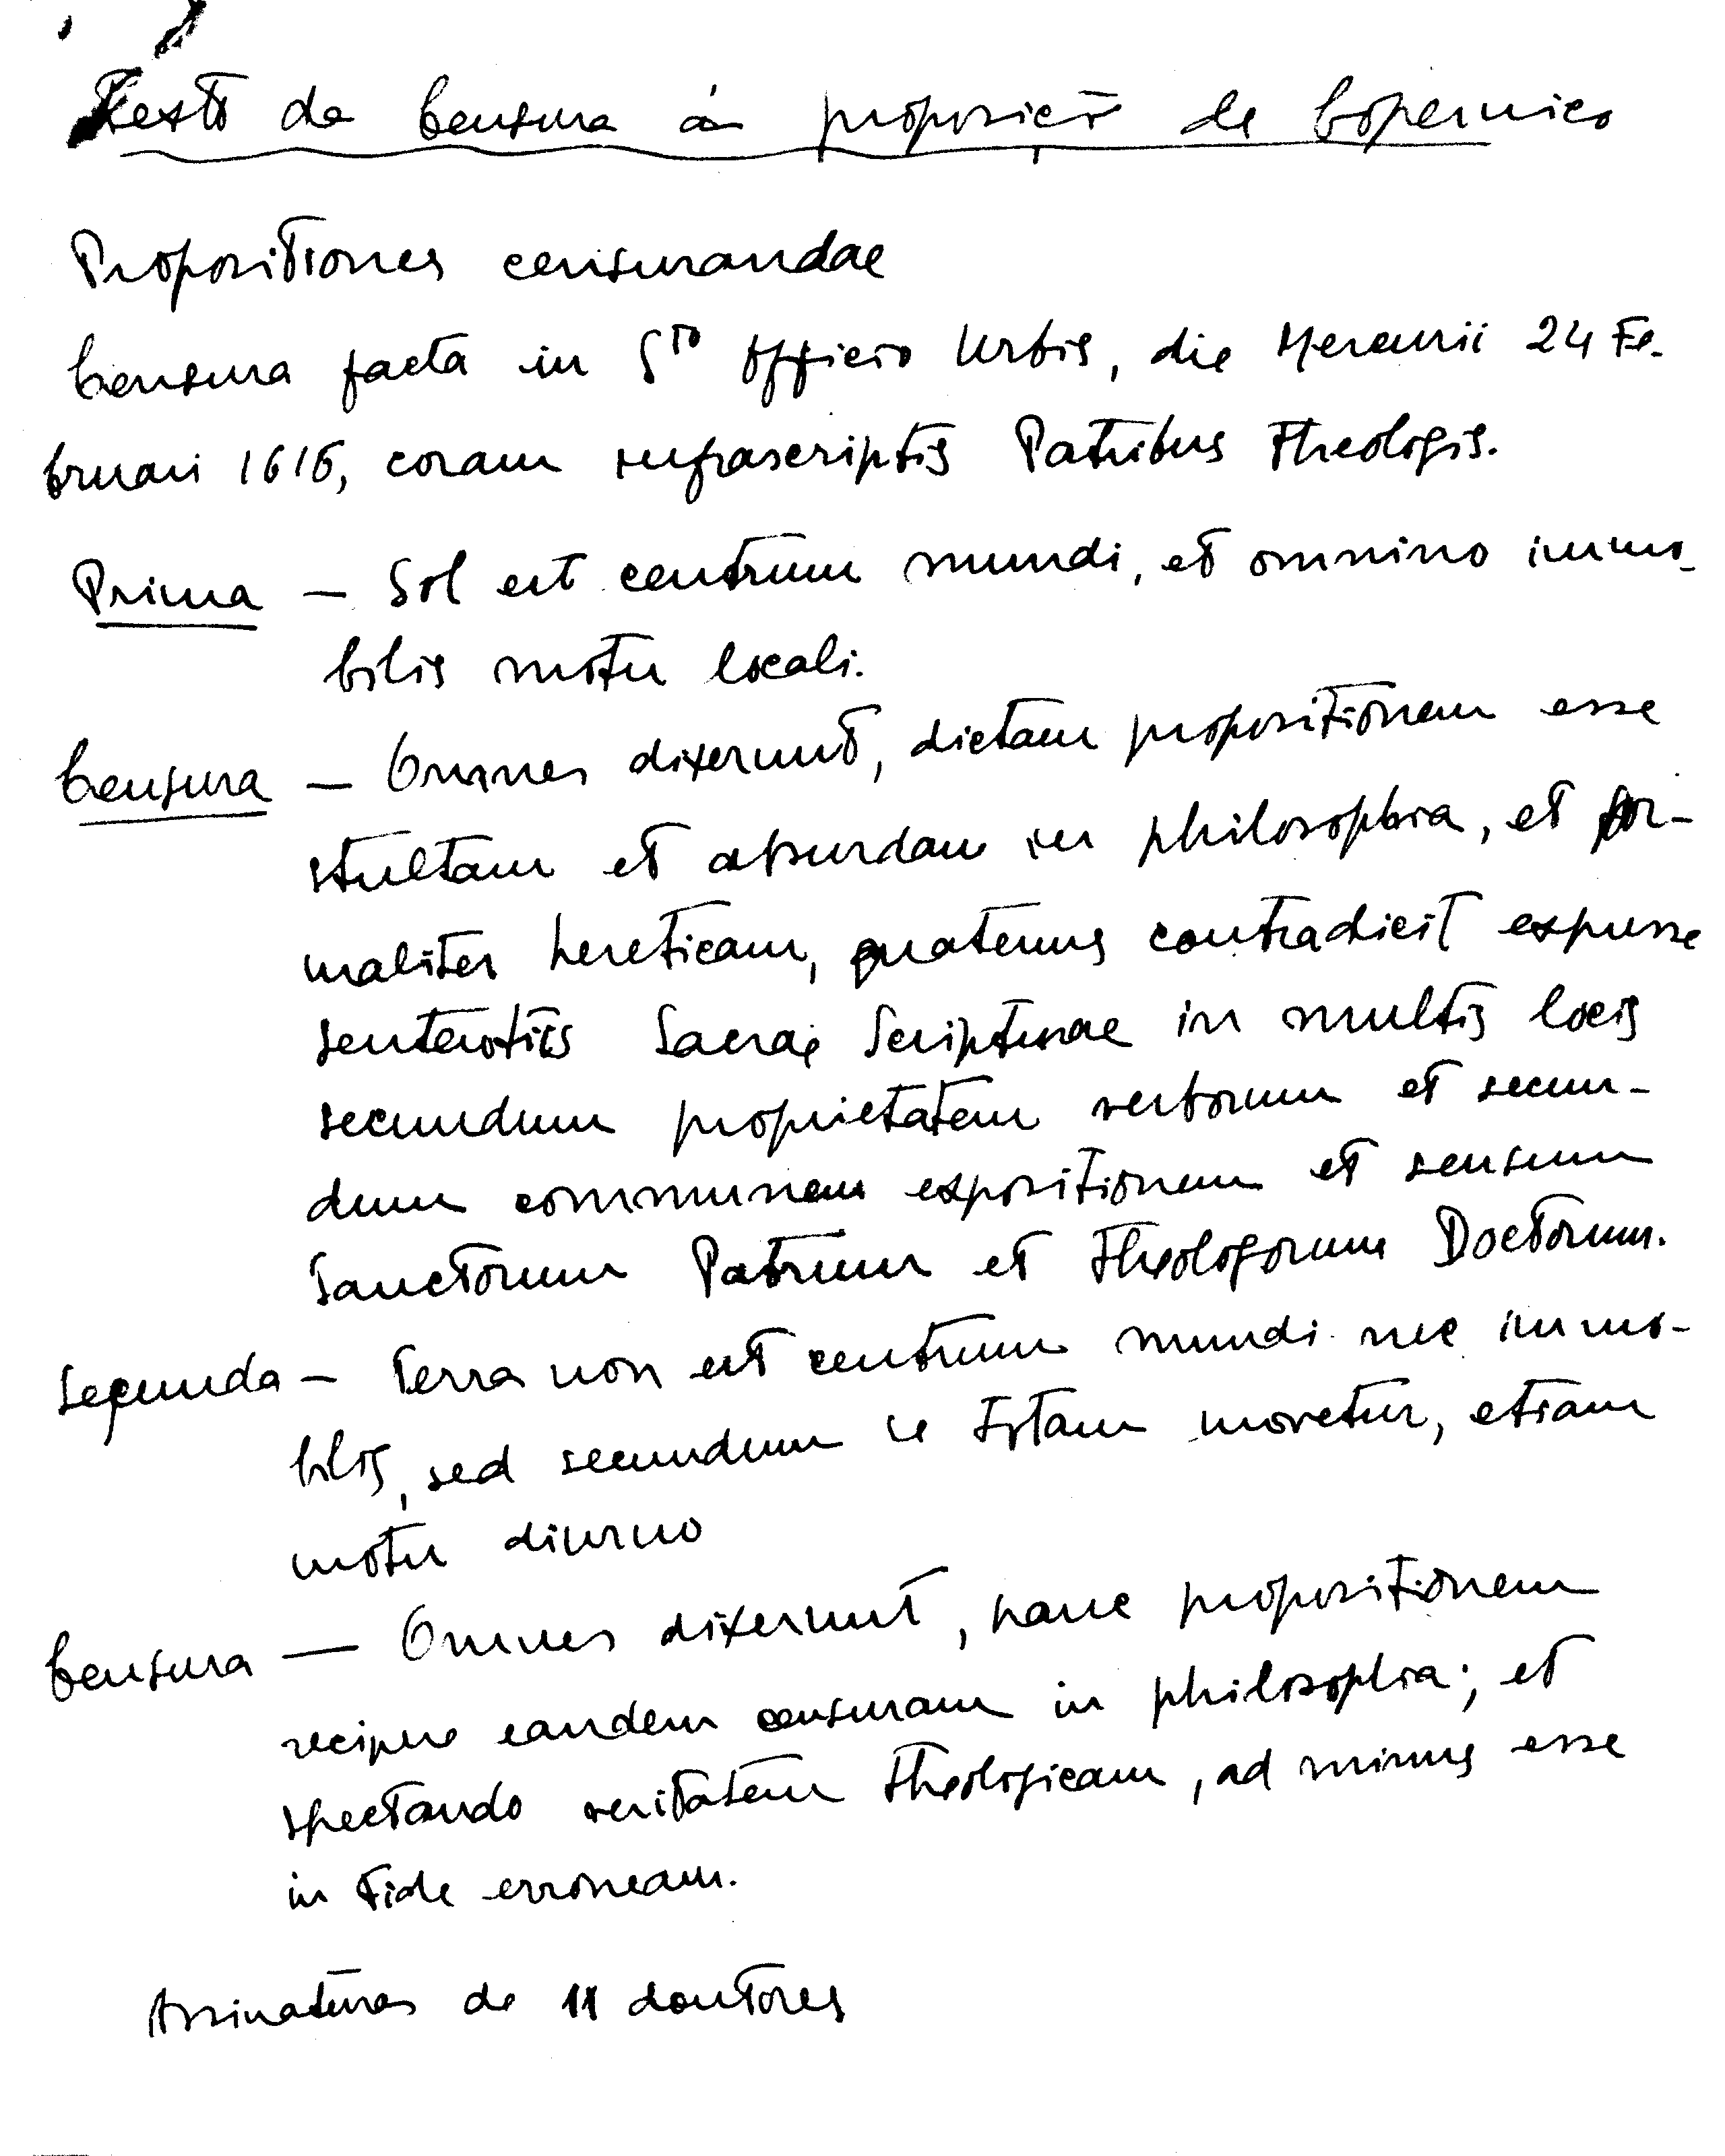 Texto da Censura à proposição de Copernico
Propositiones censurandae
Censura facta in Sto Officio Urbis, die Mercurii 24 Fe-
bruari 1616, coram infrascriptis Patribus Theologis.
Prima — Sol est centrum mundi, et omnino immo-
bilis motu locali.
Censura — Omnes dixerunt, dictam propositionem esse
stultam et absurdam in philosophia, et for-
maliter hereticam, quatenus contradicit expresse
sententiis Sacrae Scripturae in multis locis
secundum proprietatem verborum et secun-
dum communem expositionem et sensum
Sanctorum Patrum et Theologorum Doctorum.
Segunda — Terra non est centrum mundi nec immo-
bilis, sed secundum se Totam movetur, etiam
motu diurno
Censura — Omnes dixerunt, hanc propositionem
recipere eandem censuram in philosophia; et
spectando veritatem theologicam, ad minus esse
in Fide erroneam.
Assinaturas de 11 doutores